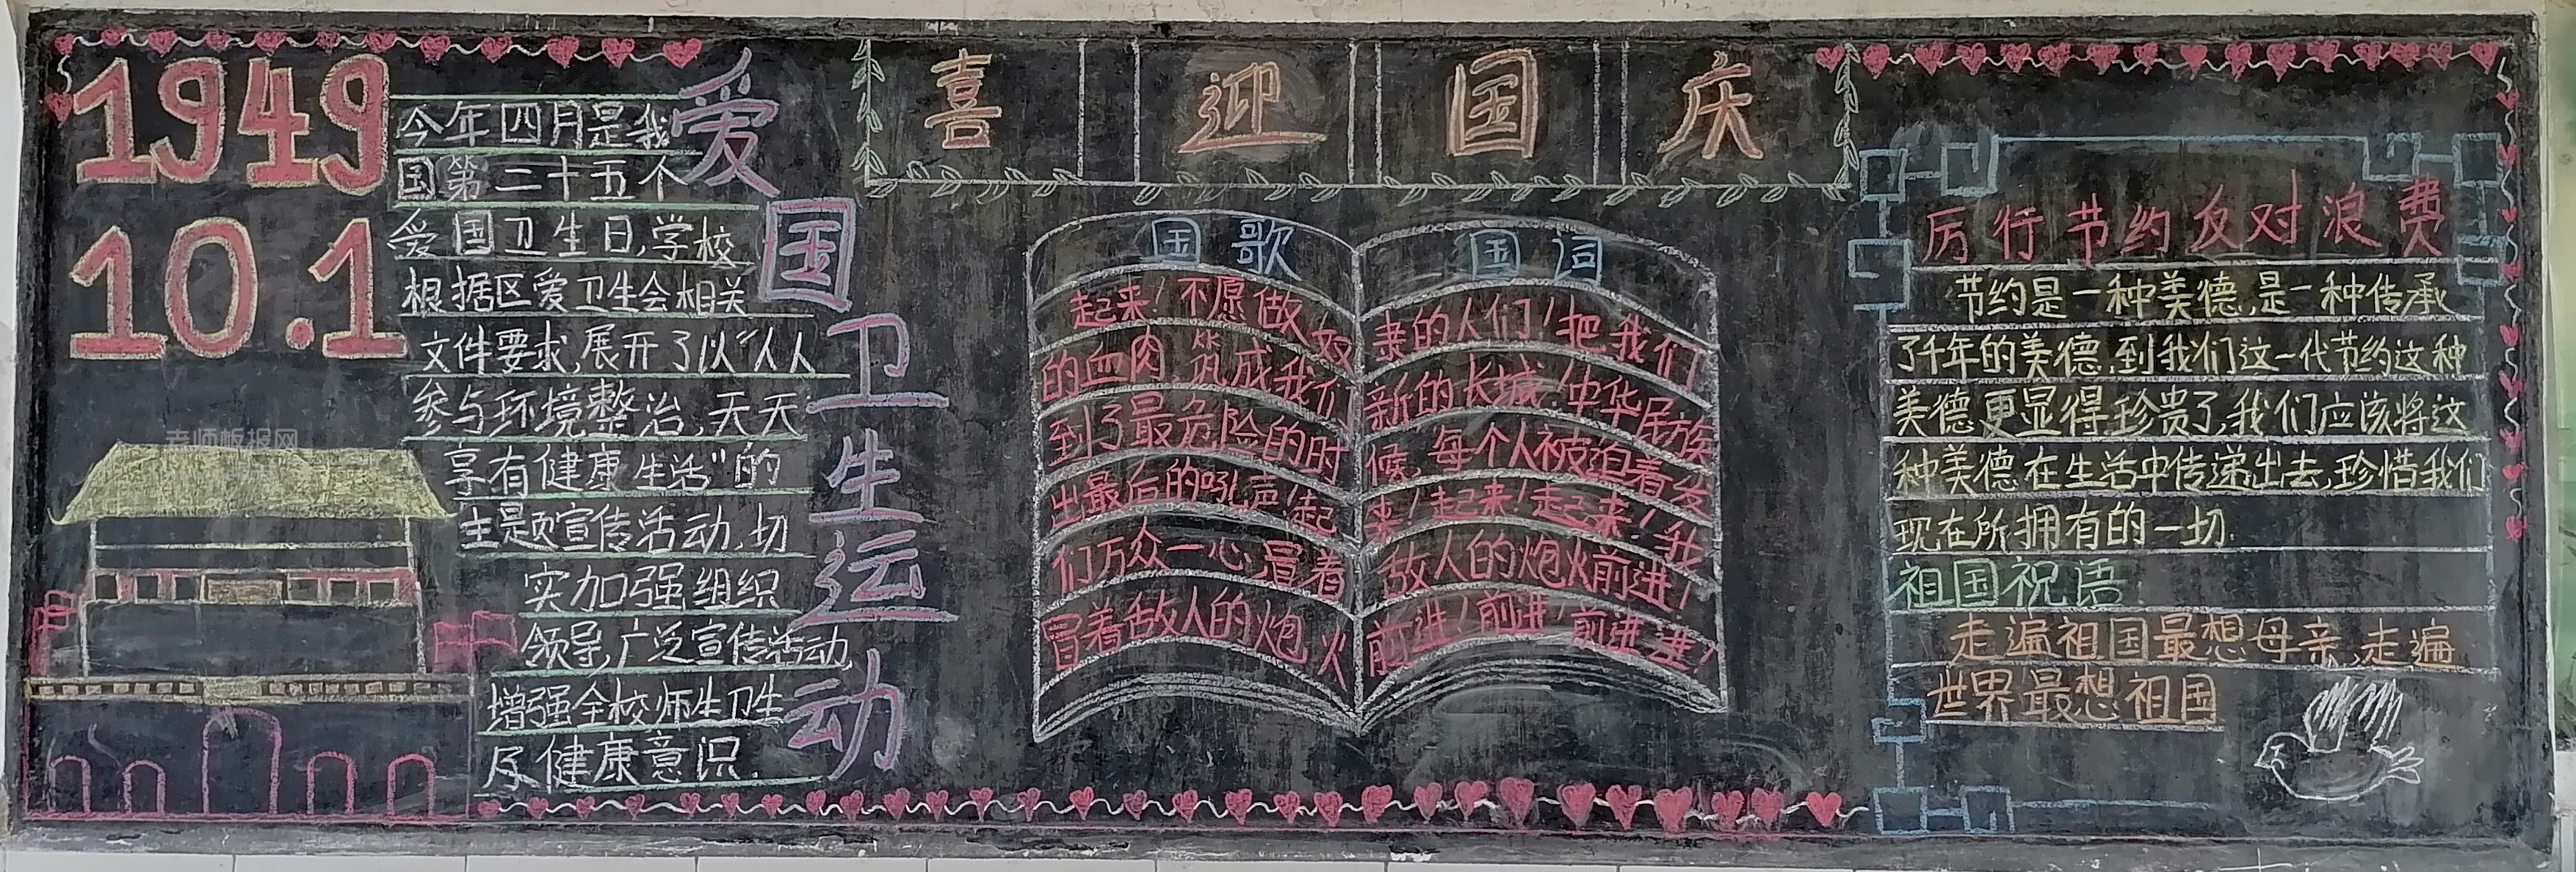 1949
10.1
今年四月是我
国第二十五个
爱国卫生日,学校
根据区爱卫生会相关
文件要求,展开了以“人人
参与环境整治,天天
享有健康生活”的
主题页宣传活动,切
实加强组织
领导,广泛宣传活动,
增强全校师生卫生
尽健康意识.
爱国卫生运动
老师板报网
喜迎国庆
国歌
起来!不愿做奴
的血肉筑成我们
到了最危险的时
出最后的吼声!起
们万众一心,冒着
冒着敌人的炮火
国词
隶的人们!把我们
新的长城!中华民族
候,每个人被迫着发
来!起来!起来!我
敌人的炮火前进!
前进!前进!前进进!
厉行节约反对浪费
节约是一种美德,是一种传承
了千年的美德,到我们这一代节约这种
美德更显得珍贵了,我们应该将这
种美德在生活中传递出去,珍惜我们
现在所拥有的一切.
祖国祝语
走遍祖国最想母亲,走遍
世界最想祖国